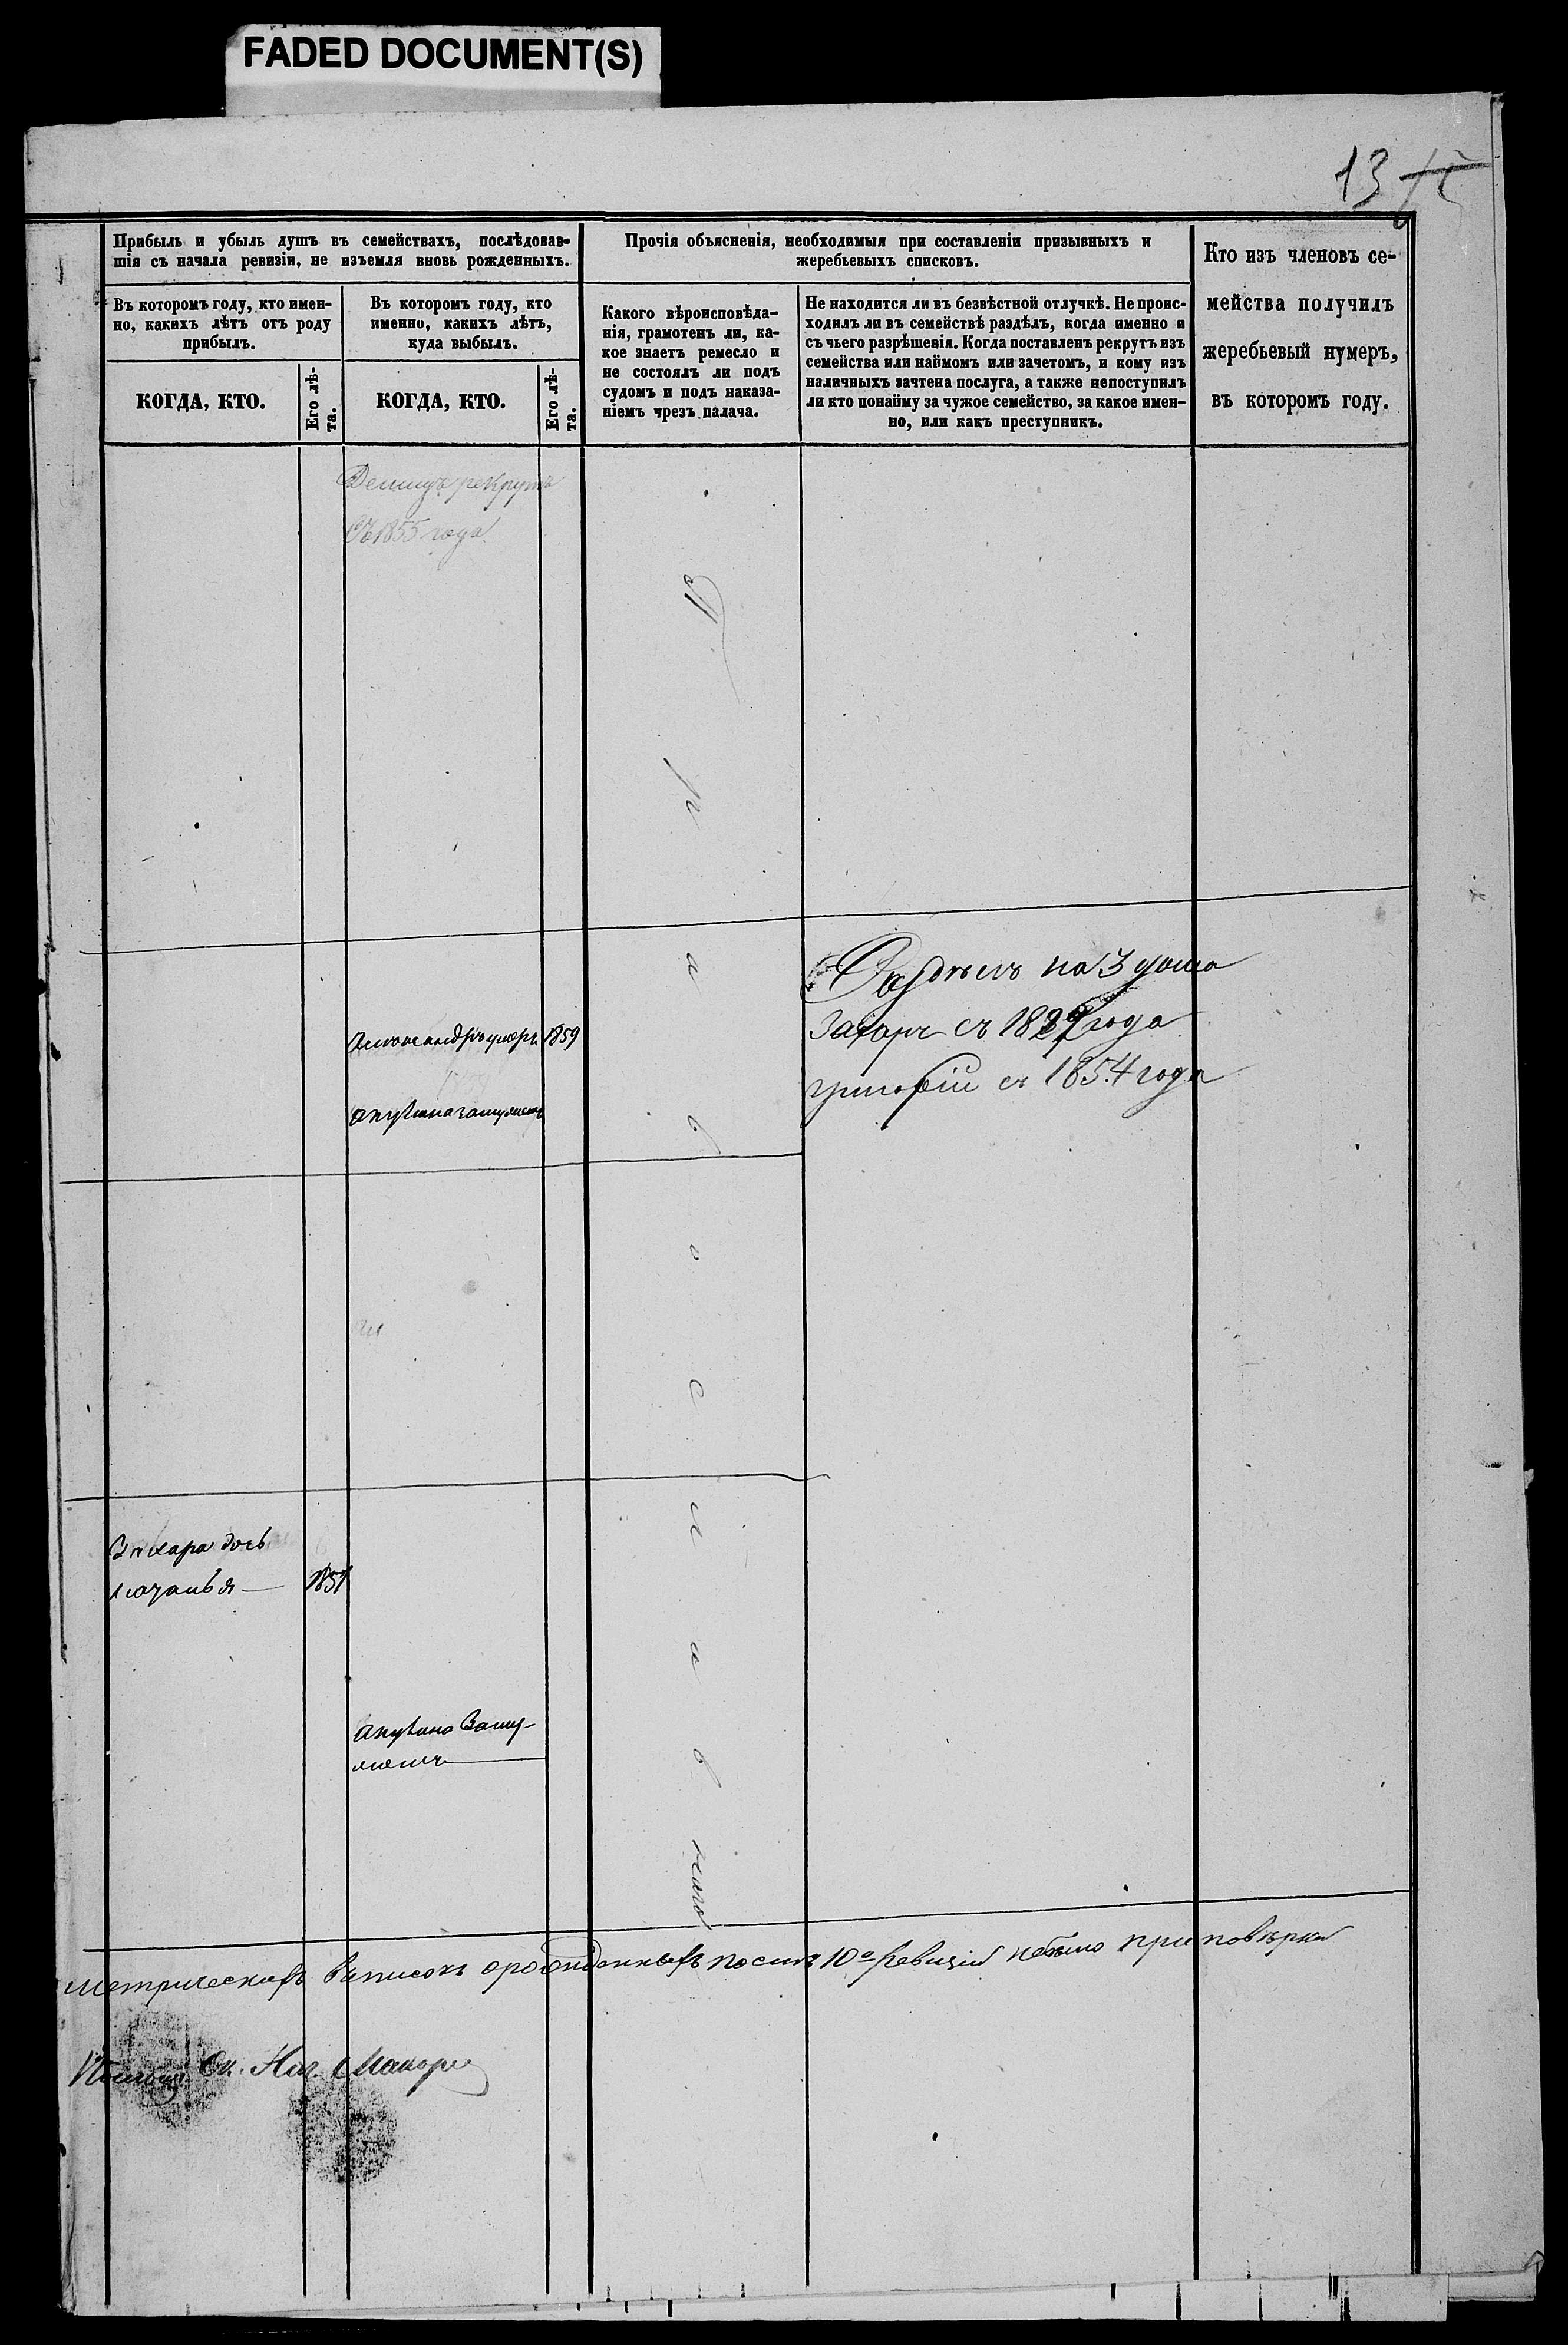 FADED DOCUMENT(S)
13
Прибыль и убыль душъ въ семействахъ, послѣдовав-
шія съ начала ревизіи, не изъемля вновь рожденныхъ.
Прочія объясненія, необходимыя при составленіи призывныхъ и
жеребьевыхъ списковъ.
Кто изъ членовъ се-
мейства получилъ
жеребьевый нумеръ,
въ которомъ году.
Въ которомъ году, кто имен-
но, какихъ лѣтъ отъ роду
прибылъ.
Въ которомъ году, кто
именно, какихъ лѣтъ,
куда выбылъ.
Какого вѣроисповѣда-
нія, грамотенъ ли, ка-
кое знаетъ ремесло и
не состоялъ ли подъ
судомъ и подъ наказа-
ніемъ чрезъ палача.
Не находится ли въ безвѣстной отлучкѣ. Не проис-
ходилъ ли въ семействѣ раздѣлъ, когда именно и
съ чьего разрѣшенія. Когда поставленъ рекрутъ изъ
семейства или наймомъ или зачетомъ, и кому изъ
наличныхъ зачтена послуга, а также непоступилъ
ли кто понайму за чужое семейство, за какое имен-
но, или какъ преступникъ.
КОГДА, КТО.
Его лѣ-
та.
КОГДА, КТО.
Его лѣ-
та.
рекрутъ
Съ 1855 года
П р а в о с л а в наго
Раздѣлъ на 3 дома
Захаръ съ года
Григорій съ 1854 года
Александръ умеръ 1859
Акулина замужемъ
Захара дочь
1857
Акулина Заму-
жемъ
Метрическихъ выписокъ орожденныхъ послѣ 10й Ревизіи небыло приповѣрки